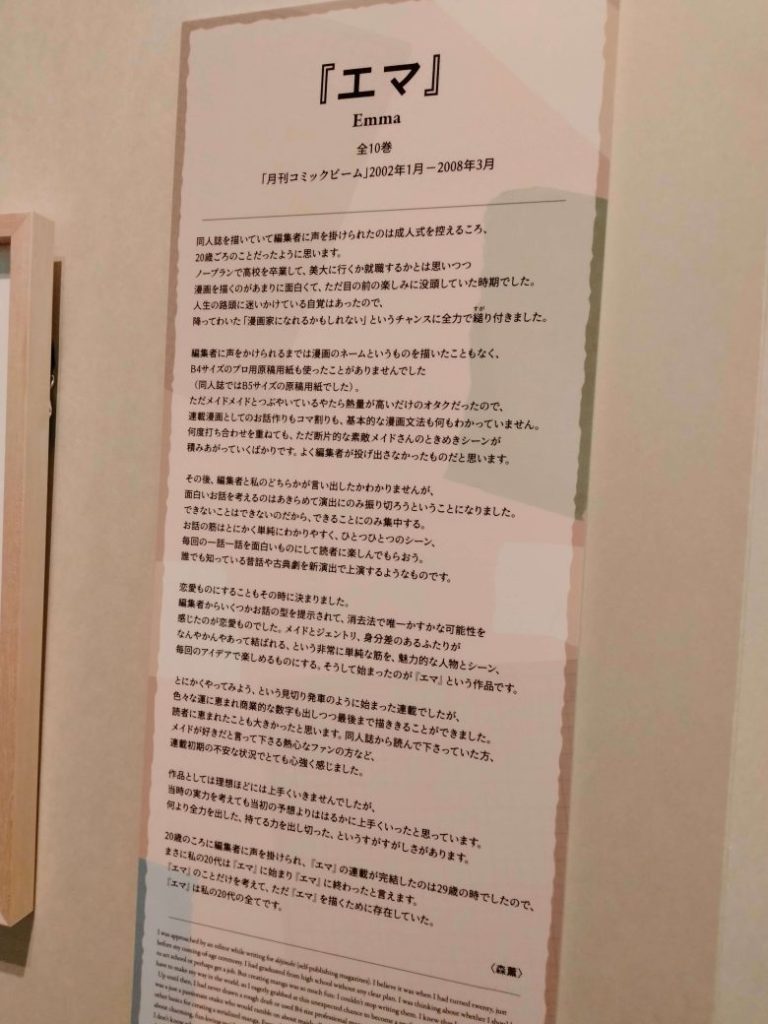 『エマ』
Emma
全10巻
「月刊コミックビーム」2002年1月－2008年3月
同人誌を描いていて編集者に声を掛けられたのは成人式を控えるころ、
20歳ごろのことだったように思います。
ノープランで高校を卒業して、美大に行くか就職するかとは思いつつ
漫画を描くのがあまりに面白くて、ただ目の前の楽しみに没頭していた時期でした。
人生の路頭に迷いかけている自覚はあったので、
降ってわいた「漫画家になれるかもしれない」というチャンスに全力で縋り付きました。
編集者に声をかけられるまでは漫画のネームというものを描いたこともなく、
B4サイズのプロ用原稿用紙も使ったことがありませんでした
（同人誌ではB5サイズの原稿用紙でした）。
ただメイドメイドとつぶやいているやたら熱量が高いだけのオタクだったので、
連載漫画としてのお話作りもコマ割りも、基本的な漫画文法も何もわかっていません。
何度打ち合わせを重ねても、ただ断片的な素敵メイドさんのときめきシーンが
積みあがっていくばかりです。よく編集者が投げ出さなかったものだと思います。
その後、編集者と私のどちらかが言い出したかわかりませんが、
面白いお話を考えるのはあきらめて演出にのみ振り切ろうということになりました。
できないことはできないのだから、できることにのみ集中する。
お話の筋はとにかく単純にわかりやすく、ひとつひとつのシーン、
毎回の一話一話を面白いものにして読者に楽しんでもらおう。
誰でも知っている昔話や古典劇を新演出で上演するようなものです。
恋愛ものにすることもその時に決まりました。
編集者からいくつかお話の型を提示されて、消去法で唯一かすかな可能性を
感じたのが恋愛ものでした。メイドとジェントリ、身分差のあるふたりが
なんやかんやあって結ばれる、という非常に単純な筋を、魅力的な人物とシーン、
毎回のアイデアで楽しめるものにする。そうして始まったのが『エマ』という作品です。
とにかくやってみよう、という見切り発車のように始まった連載でしたが、
色々な運に恵まれ商業的な数字も出しつつ最後まで描ききることができました。
読者に恵まれたことも大きかったと思います。同人誌から読んで下さっていた方、
メイドが好きだと言って下さる熱心なファンの方など、
連載初期の不安な状況でとても心強く感じました。
作品としては理想ほどには上手くいきませんでしたが、
当時の実力を考えても当初の予想よりははるかに上手くいったと思っています。
何より全力を出した、持てる力を出し切った、というすがすがしさがあります。
20歳のころに編集者に声を掛けられ、『エマ』の連載が完結したのは29歳の時でしたので、
まさに私の20代は『エマ』に始まり『エマ』に終わったと言えます。
『エマ』のことだけを考えて、ただ『エマ』を描くために存在していた。
『エマ』は私の20代の全てです。
〈森薫〉
I was approached by an editor while writing for dōjinshi (self-publishing magazines). I believe it was when I had turned twenty, just
before my coming-of-age ceremony. I had graduated from high school without any clear plan. I was thinking about whether I should
to art school or perhaps get a job. But creating manga was so much fun; I couldn't stop writing them. I knew
have to make my way in the world, so I eagerly grabbed at this unexpected chance to become a
Up until then, I had never drawn a rough draft or used B4 size professional
was a just a passionate otaku who would ramble on about maids
other basics for creating a serialized manga.
about charming,
I don't know